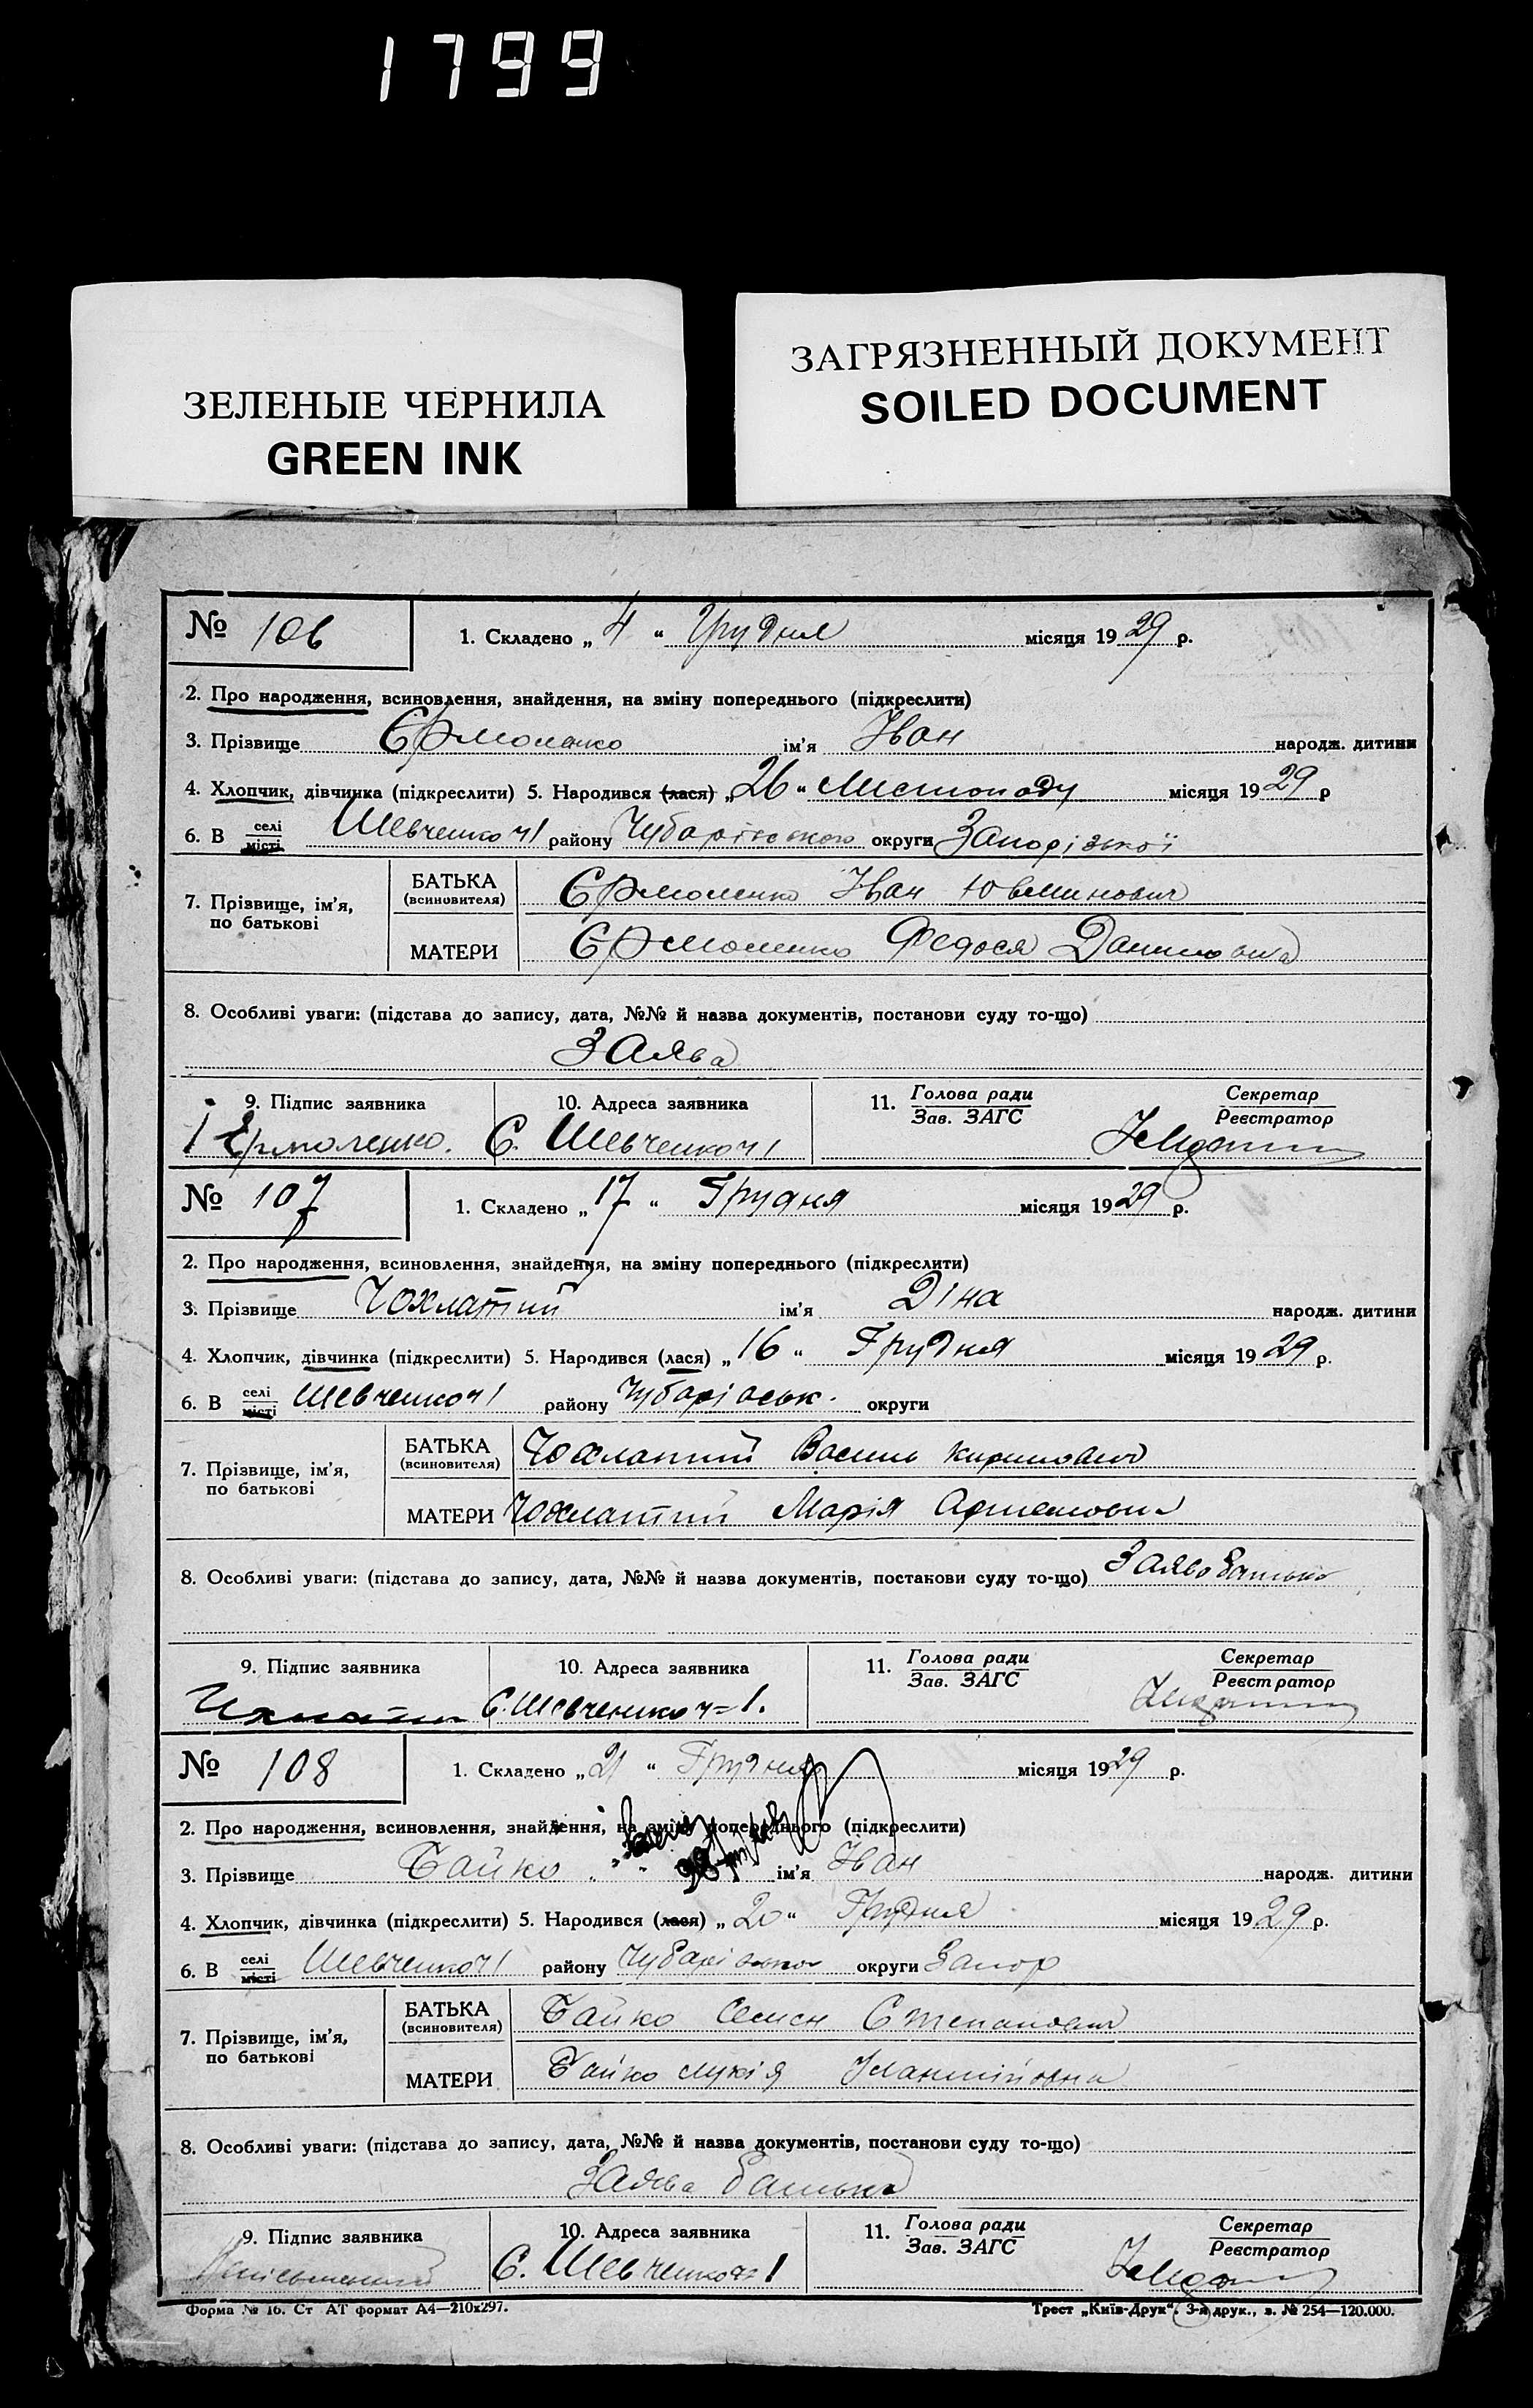 1799
ЗЕЛЕНЫЕ ЧЕРНИЛА
GREEN INK
ЗАГРЯЗНЕННЫЙ ДОКУМЕНТ
SOILED DOCUMENT
№ 106 1. Складено „ 4 “ Грудня місяця 1929 р.
2. Про народження, всиновлення, знайдення, на зміну попереднього (підкреслити)
3. Прізвище Єрмоленко ім'я Іван народж. дитини
4. Хлопчик, дівчинка (підкреслити) 5. Народився (лася) „ 26 “ Листопаду місяця 1929 р
6. В селі Шевченко ч1 району Чубарівського округи Запорізької
місті
7. Прізвище, ім'я, по батькові
БАТЬКА (всиновителя) Єрмоленко Іван
МАТЕРИ Єрмоленко Федося Даниловна
8. Особливі уваги: (підстава до запису, дата, №№ й назва документів, постанови суду то-що)
Заява
9. Підпис заявника 10. Адреса заявника 11. Голова ради Секретар
Зав. ЗАГС Реєстратор
І Єрмоленко. С. Шевченко ч1
№ 107 1. Складено „ 17 “ Грудня місяця 1929 р.
2. Про народження, всиновлення, знайдення, на зміну попереднього (підкреслити)
3. Прізвище Чохлатий ім'я Діна народж. дитини
4. Хлопчик, дівчинка (підкреслити) 5. Народився (лася) „ 16 “ Грудня місяця 1929 р.
6. В селі Шевченко ч1 району Чубарівськ. округи
місті
7. Прізвище, ім'я, по батькові
БАТЬКА (всиновителя) Чохлатий Василь Кирилович
МАТЕРИ Чохлатий Марія Артемовна
8. Особливі уваги: (підстава до запису, дата, №№ й назва документів, постакови суду то-що) Заява батька
9. Підпис заявника 10. Адреса заявника 11. Голова ради Секретар
Зав. ЗАГС Реєстратор
С. Шевченко ч=1.
№ 108 1. Складено „ 21 “ Грудня місяця 1929 р.
2. Про народження, всиновлення, знайдення, на зміну попереднього (підкреслити)
3. Прізвище Байко ім'я Іван народж. дитини
4. Хлопчик, дівчинка (підкреслити) 5. Народився (лася) „ 20 “ Грудня місяця 1929 р.
6. В селі Шевченко ч1 району округи Запор
місті
7. Прізвище, ім'я, по батькові
БАТЬКА (всиновителя) Байко Семен Степанович
МАТЕРИ Байко Лукія
8. Особливі уваги: (підстава до запису, дата, №№ й назва документів, постанови суду то-що)
Заява батька
9. Підпис заявника 10. Адреса заявника 11. Голова ради Секретар
Зав. ЗАГС Реєстратор
С. Шевченко ч=1
Форма № 16. Ст АТ формат А4—210х297.
Трест „Київ-Друк“ 3-я друк., з. № 254—120.000.